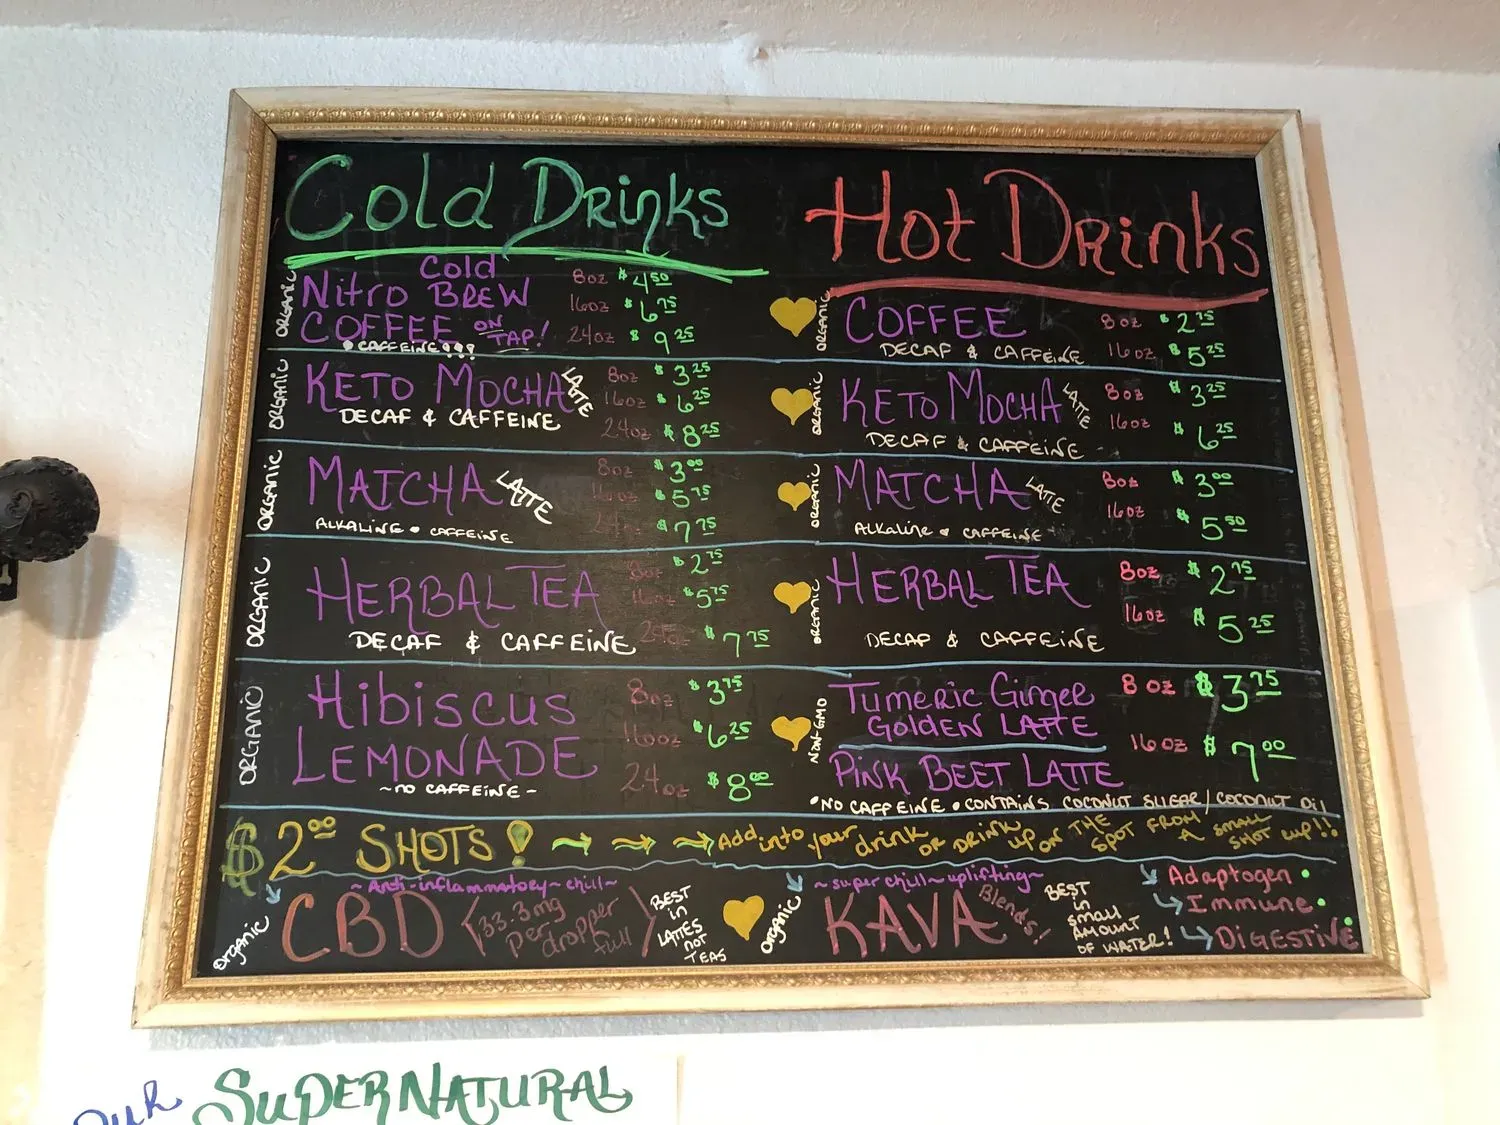 Cold Drinks
ORGANIC
Nitro Cold BREW
COFFEE ON TAP!
• CAFFEINE
8oz $4.50
16oz $6.75
24oz $9.25
ORGANIC
KETO MOCHA LATTE
DECAF & CAFFEINE
8oz $3.25
16oz $6.25
24oz $8.25
ORGANIC
MATCHA LATTE
ALKALINE • CAFFEINE
8oz $3.00
16oz $5.75
24oz $7.75
ORGANIC
HERBAL TEA
DECAF & CAFFEINE
8oz $2.75
16oz $5.75
24oz $7.75
ORGANIC
Hibiscus
LEMONADE
~NO CAFFEINE~
8oz $3.75
16oz $6.25
24oz $8.00
Hot Drinks
ORGANIC
COFFEE
DECAF & CAFFEINE
8oz $2.75
16oz $5.25
ORGANIC
KETO MOCHA LATTE
DECAF & CAFFEINE
8oz $3.25
16oz $6.25
ORGANIC
MATCHA LATTE
Alkaline • CAFFEINE
8oz $3.00
16oz $5.50
ORGANIC
HERBAL TEA
DECAF & CAFFEINE
8oz $2.75
16oz $5.25
NON-GMO
TUMERIC GINGER
GOLDEN LATTE
PINK BEET LATTE
8oz $3.75
16oz $7.00
•NO CAFFEINE •CONTAINS COCONUT SUGAR/COCONUT OIL
$2.00 SHOTS! Add into your drink OR DRINK UP ON THE SPOT FROM A SMALL SHOT CUP!!
~Anti-inflammatory~chill~
ORGANIC
CBD
33.3mg
per dropper
full
BEST
in
LATTES
NOT
TEAS
~super chill~uplifting~
ORGANIC
KAVA
Blends!
BEST
in
SMALL
AMOUNT
OF WATER!
Adaptogen
Immune
DIGESTIVE
OUR SUPERNATURAL